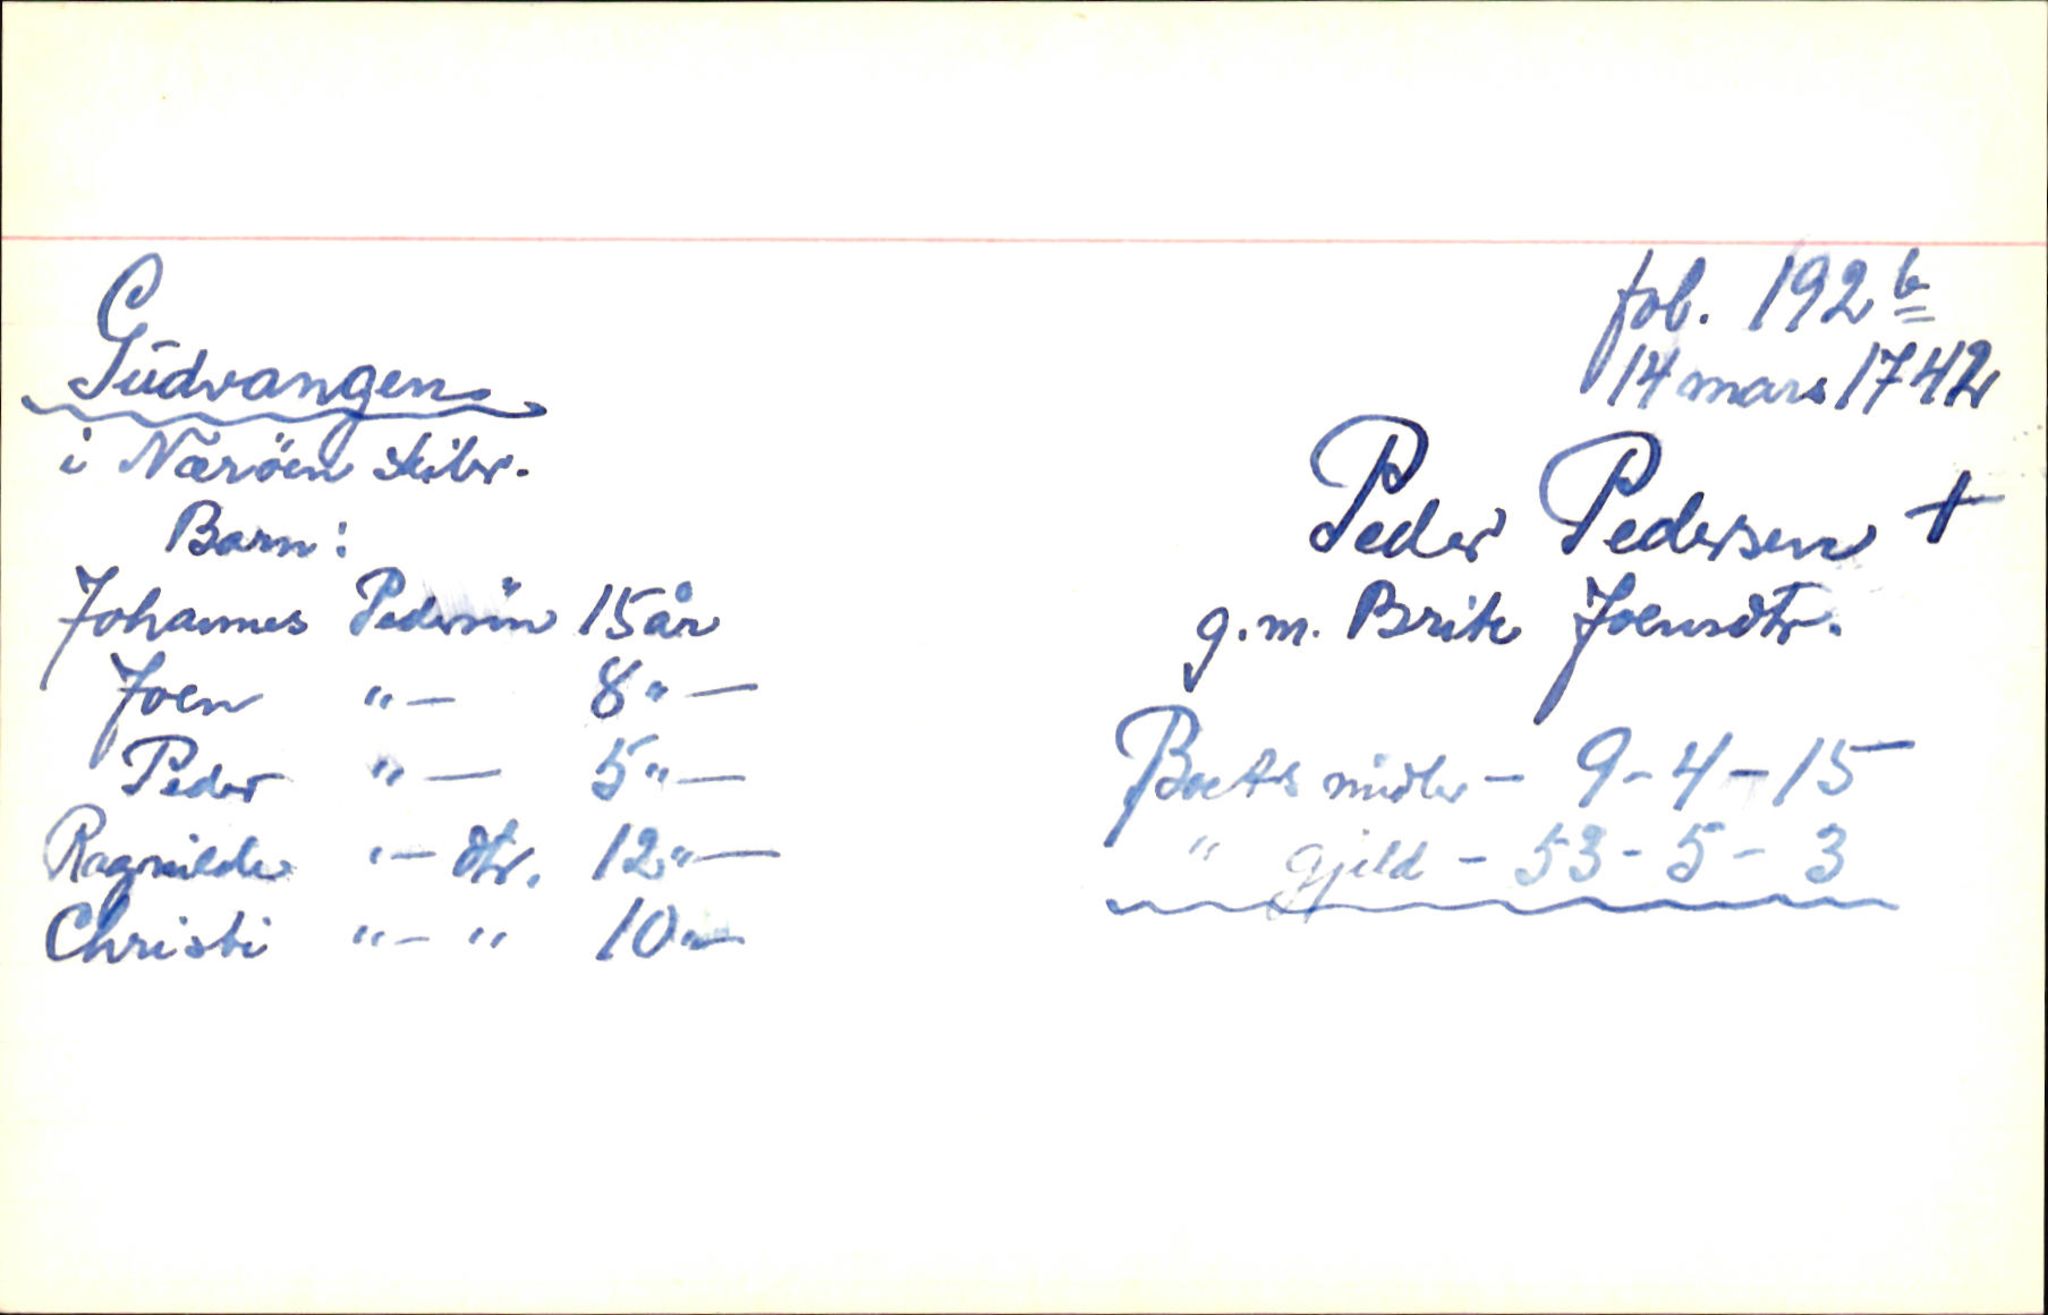 fol. 192 b
14 mars 1742
Gudvangen
i Nærøen skibr.
Peder Pedersen +
g.m. Brite Joensdtr.
Barn:
Johannes Pedersen 15 år
Joen "— 8 "—
Peder "— 5 "—
Ragnilde "— dtr. 12 "—
Christi "— " 10 "—
Boets midler — 9 - 4 - 15
" gjeld - 53 - 5 - 3